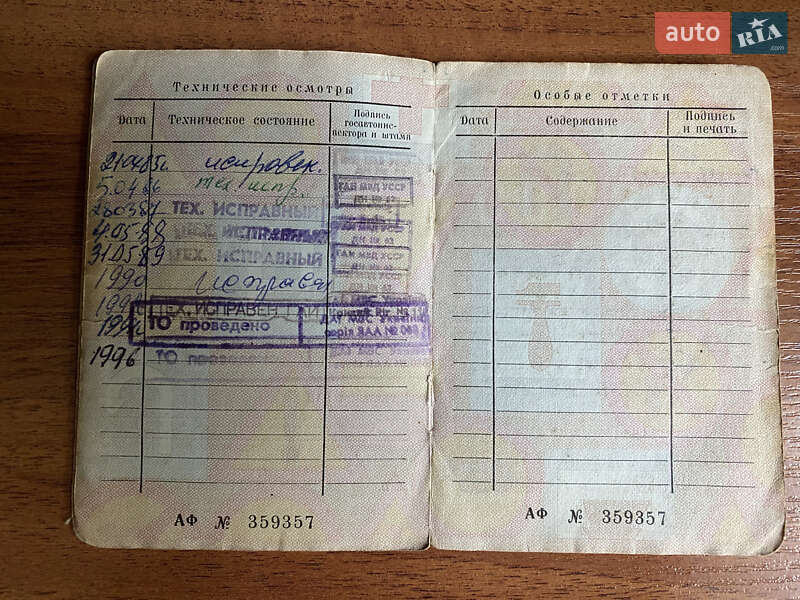 auto RIA .com
Технические осмотры
Дата Техническое состояние Подпись госавтоинспектора и штамп
21.04.85г. исправен.
5.04.86 тех. испр.
ГАИ МВД УССР
ТЕХ. ИСПРАВНЫЙ
ТЕХ. ИСПРАВНЫЙ
31.05.89 ТЕХ. ИСПРАВНЫЙ
ГАИ МВД УССР
1990 исправен
ТЕХ. ИСПРАВЕН
ТО проведено
серія ВАА № 068
1996 ТО
АФ № 359357
Особые отметки
Дата Содержание Подпись и печать
АФ № 359357